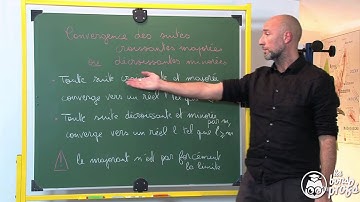 Convergence des suites
croissantes majorées
ou décroissantes minorées
· Toute suite croissante et majorée
converge vers un réel l tel que
· Toute suite décroissante et minorée
par m,
converge vers un réel l tel que l ≥ m
! le majorant n'est pas forcément
la limite
les
bons
profs